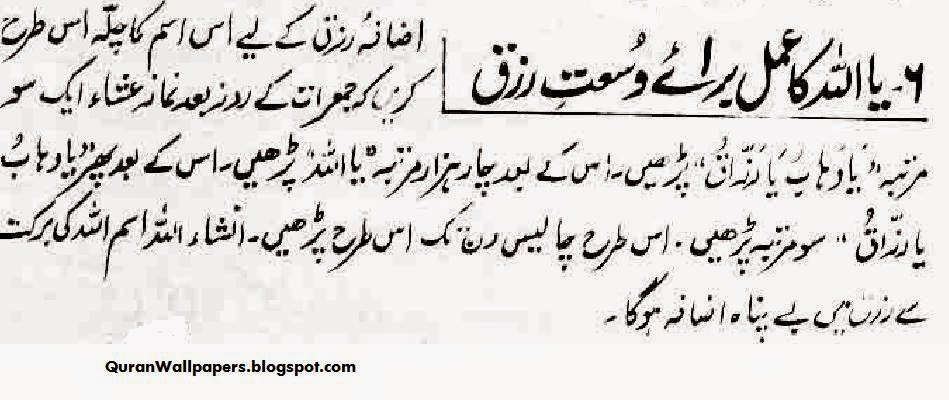 ۶۔ یا اللہ کا عمل برائے وُسعتِ رزق
اضافۂ رزق کے لیے اس اسم کا چلّہ اس طرح
کریں کہ جمعرات کے روز بعد نماز عشاء ایک سو
مرتبہ "یَا وَہَابُ یَا رَزَّاقُ" پڑھیں۔ اس کے بعد چار ہزار مرتبہ "یا اللہ" پڑھیں۔ اس کے بعد پھر "یا وہابُ
یا رزّاقُ" سو مرتبہ پڑھیں۔ اس طرح چالیس دن تک اس طرح پڑھیں۔ انشاء اللہ اسم اللہ کی برکت
سے رزق میں بے پناہ اضافہ ہوگا۔
QuranWallpapers.blogspot.com